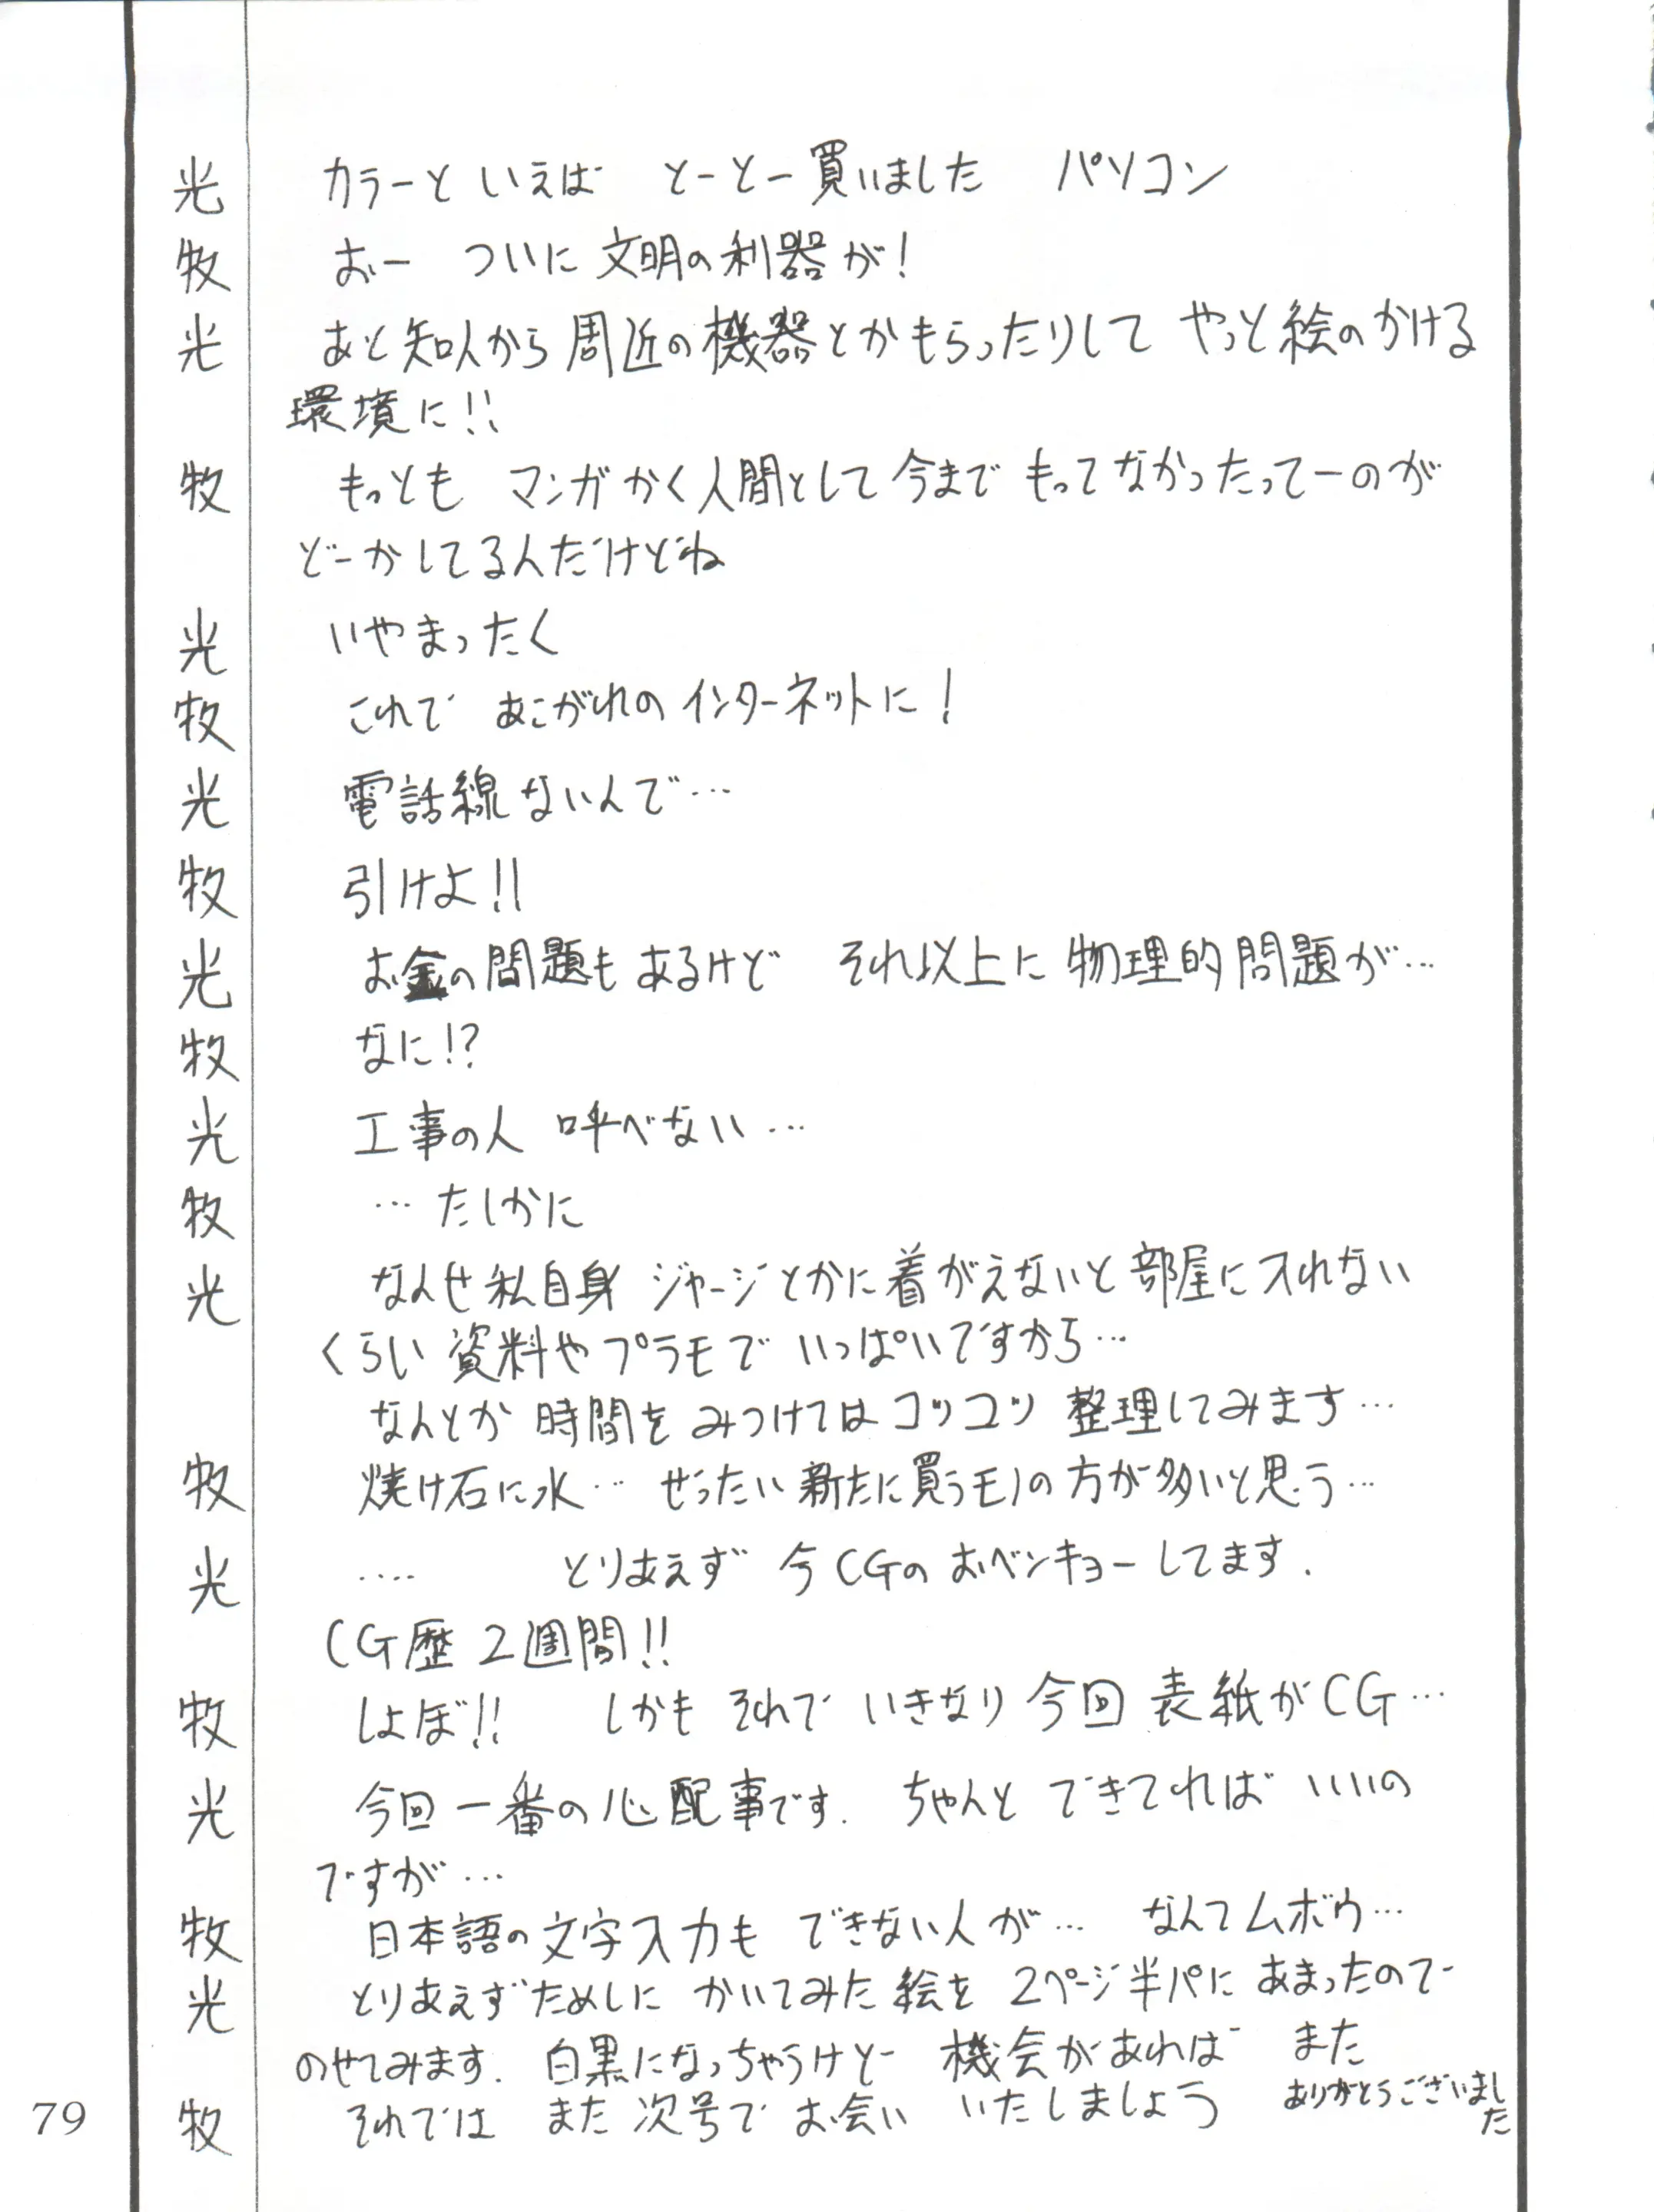 光 カラーといえば とーとー買いました パソコン
牧 おー ついに文明の利器が!
光 あと知人から周近の機器とかもらったりして やっと絵のかける
環境に!!
牧 もっとも マンガかく人間として今まで もってなかったってーのが
どーかしてるんだけどね
光 いやまったく
牧 これで あこがれのインターネットに!
光 電話線ないんで…
牧 引けよ!!
光 お金の問題もあるけど それ以上に物理的問題が…
牧 なに!?
光 工事の人 呼べない…
牧 …たしかに
光 なんせ私自身 ジャージとかに着がえないと部屋に入れない
くらい 資料やプラモで いっぱいですから…
なんとか 時間をみつけてはコツコツ 整理してみます…
牧 焼け石に水… ぜったい新たに買うモノの方が多いと思う…
光 …. とりあえず 今CGのおベンキョーしてます.
CG歴 2週間!!
牧 しょぼ!! しかも それで いきなり今回 表紙がCG…
光 今回一番の心配事です. ちゃんと できてれば いいの
ですが…
牧 日本語の文字入力も できない人が… なんてムボウ…
光 とりあえずためしに かいてみた絵を 2ページ半パにあまったので
のせてみます. 白黒になっちゃうけど 機会があれば また
牧 それでは また次号でお会い いたしましょう ありがとうございまし
た
79